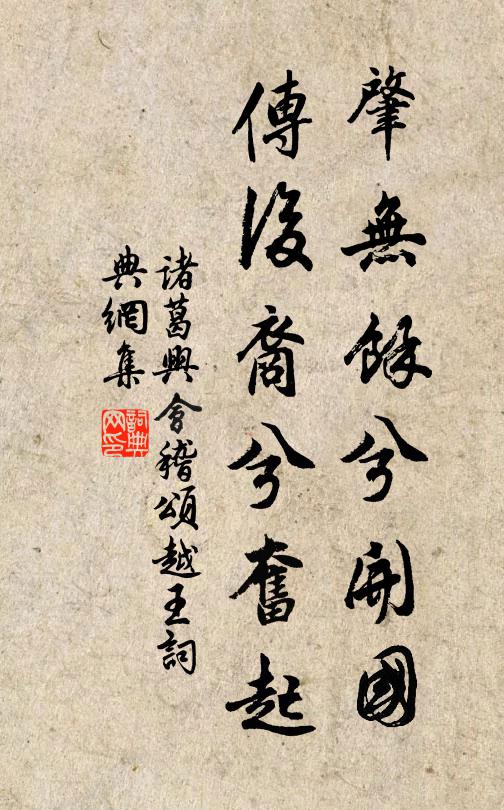 肇無餘兮開國
傳後裔兮奮起
諸葛興會稽頌越王詞
典網集
詞典網印